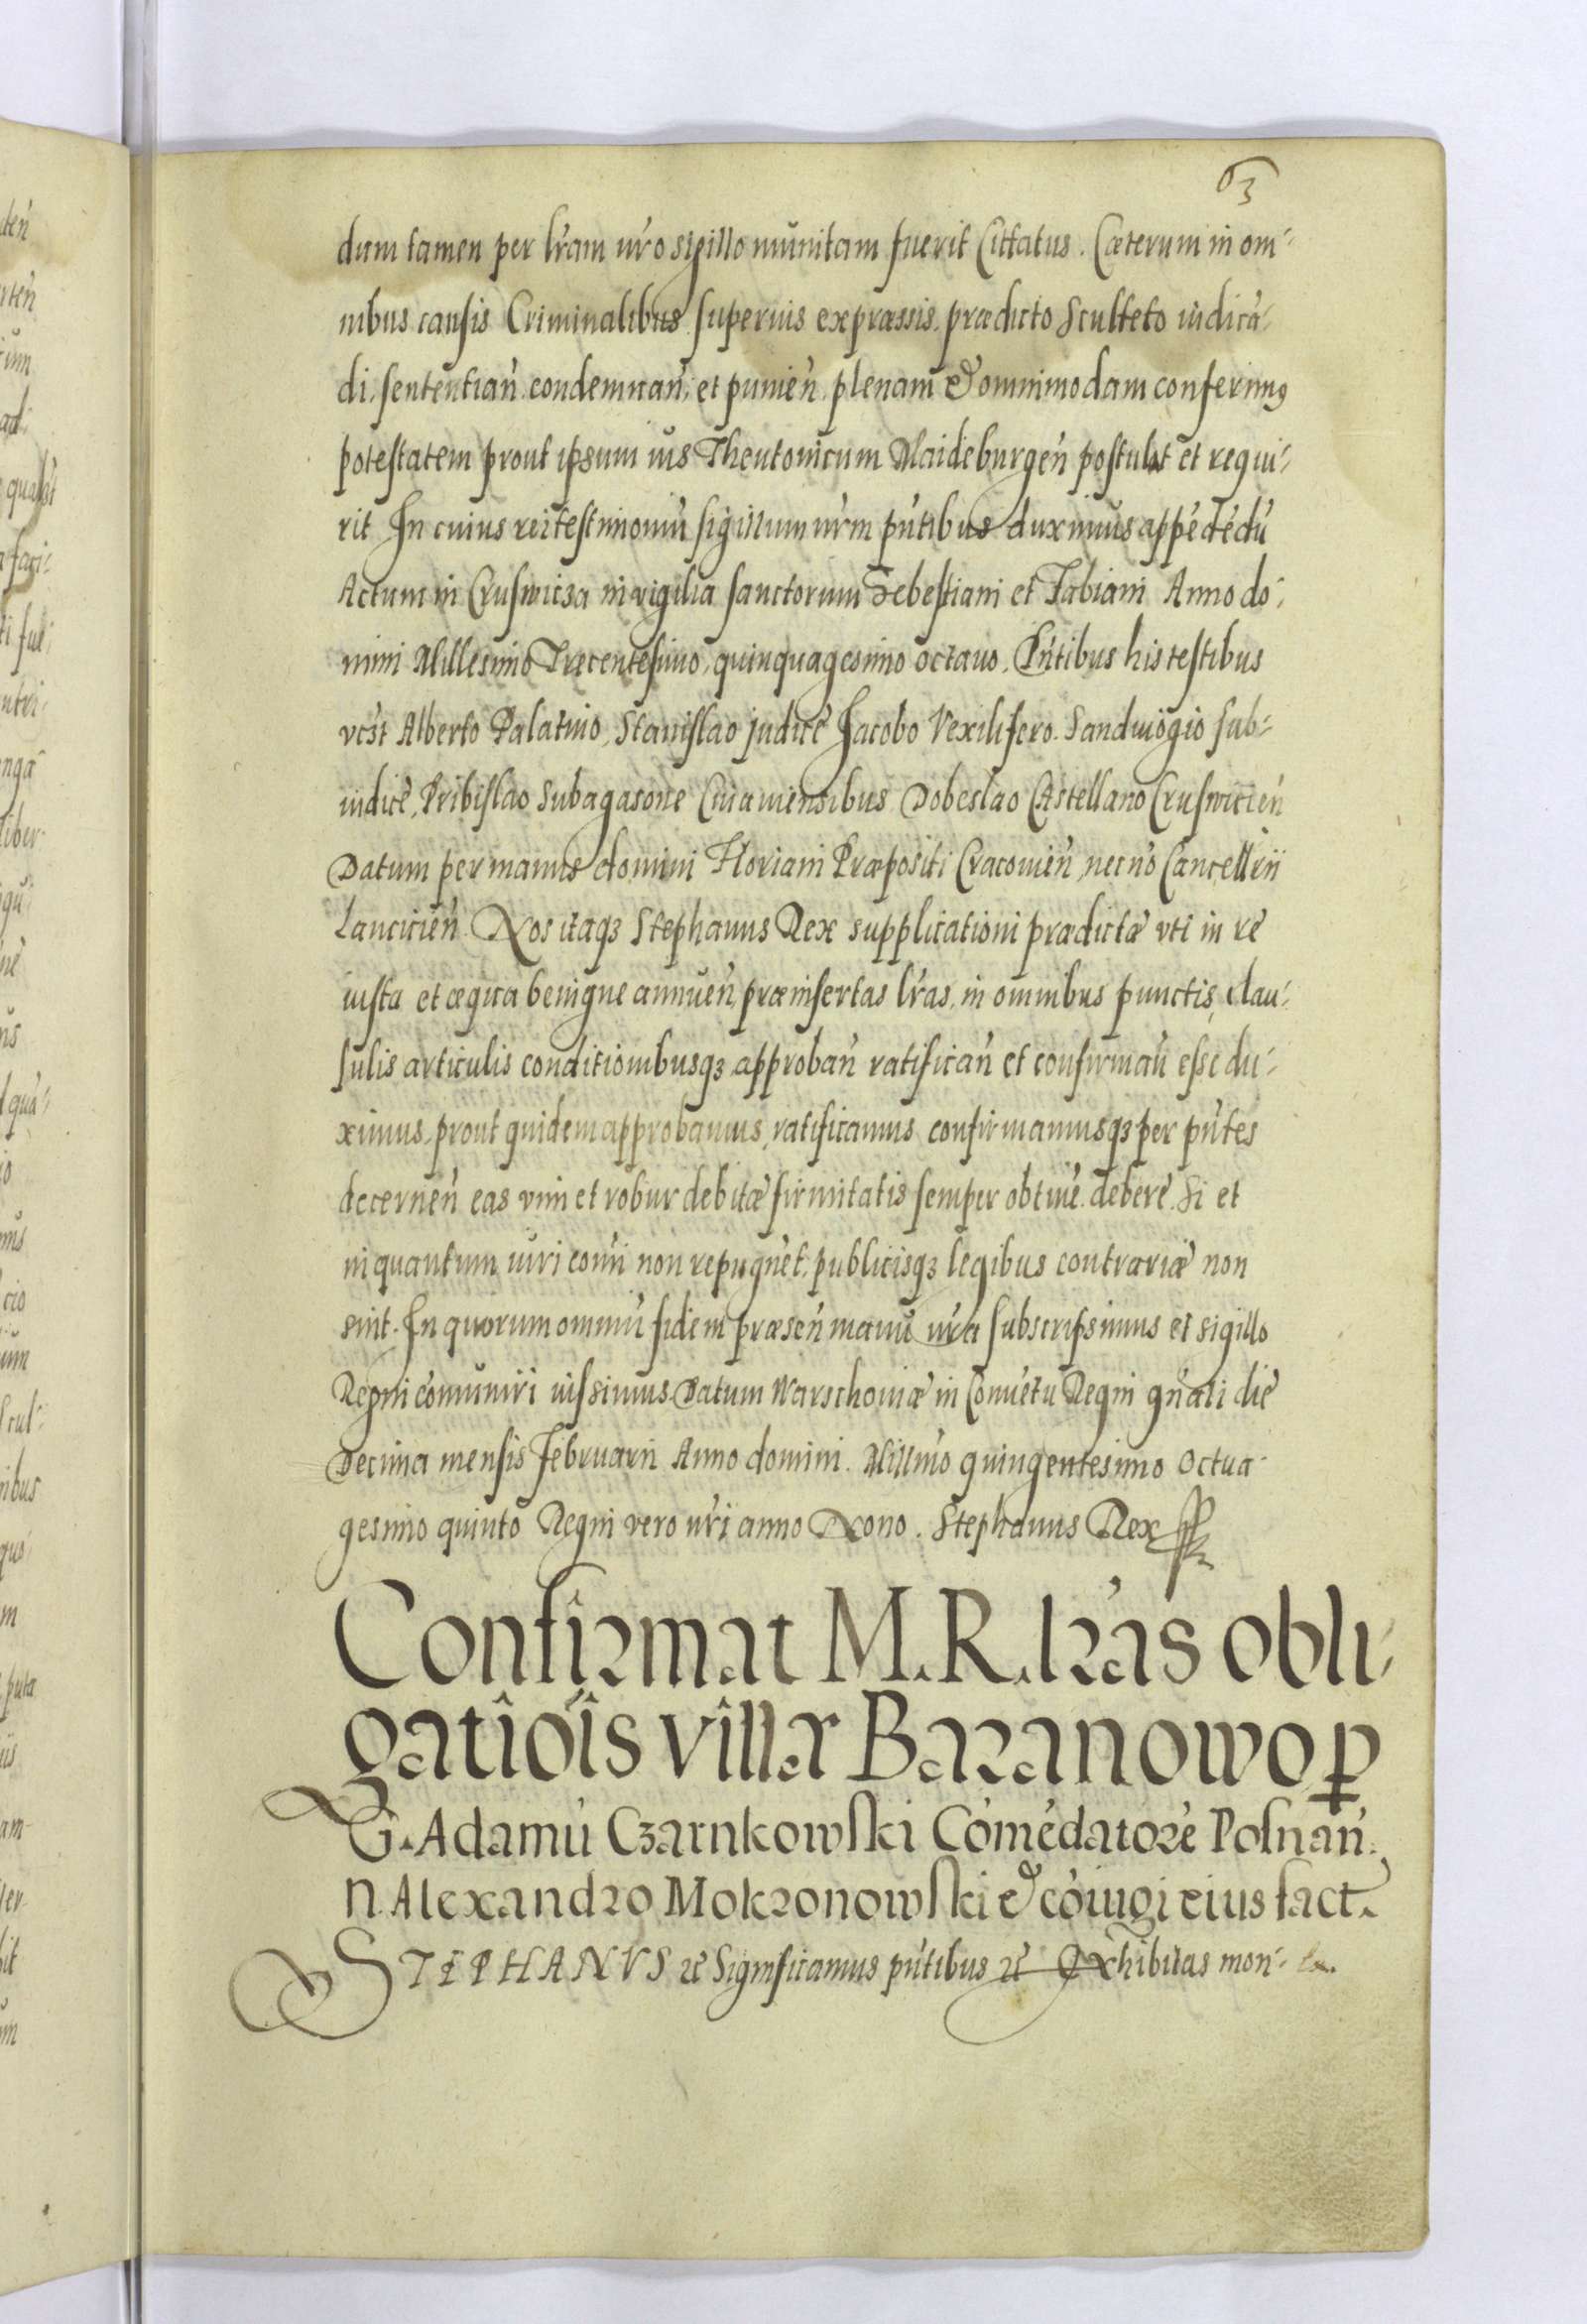 63
dum tamen per lr̃am nr̃o sigillo munitam fuerit Cittatus. Cæterum in om-
nibus causis Criminalibus superius expræssis, prædicto Sculteto iudicã-
di, sententiañ, condemnañ, et punieñ, plenam & omnimodam conferimus
potestatem prout ipsum ius Theutonicum Maideburgeñ postulat et requi-
rit In cuius rei testimoniũ sigillum nr̃m pñtibus duximus appẽdẽdũ
Actum in Cruswicza in vigilia sanctorum Sebestiani et Fabiani Anno do-
mini Millesimo Trecentesimo, quinquagesimo octauo. Pñtibus his testibus
vcst Alberto Palatino, Stanislao judice Jacobo Vexilifero. Sandiuogio sub-
iudice, Pribislao Subagasone Cuiauiensibus Dobeslao Castellano Cruswicieñ
Datum per manus domini Floriani Præpositi Cracouieñ, necnõ Cancellrii
Lancicieñ Nos itaqꝫ Stephanus Rex supplicationi prædictæ vti in re
iusta et æqua benigne annueñ, præinsertas lr̃as, in omnibus punctis, clau-
sulis articulis conditionibusqꝫ approbañ ratificañ et confirmañ esse du-
ximus, prout quidem approbamus, ratificamus confirmamusqꝫ per pñtes
decerneñ eas vim et robur debitæ firmitatis semper obtine. debere. Si et
in quantum iuri comi non repugnẽt, publicisqꝫ legibus contrariæ non
sint. In quorum omniũ fidem præseñ manu nr̃a subscripsimus et sigillo
Regni cõmuniri iussimus Datum Warschouiæ in Conuẽtu Regni gñali die
Decima mensis Februarii Anno domini. Millm̃o quingentesimo Octua-
gesimo quinto Regni vero nr̃i anno Nono. Stephanus Rex
Confirmat M.R. lr̃as obli-
gatiõis villæ Baranowo ꝑ
G. Adamũ Czarnkowski Cõmẽdatorẽ Posnañ.
N. Alexandro Mokronowski & cõiugi eius fact.
STEPHANVS ꝛc Significamus pñtibus ꝛc Exhibitas mon-